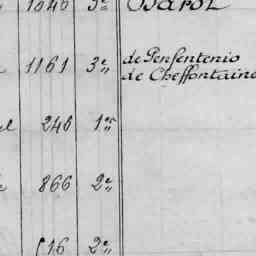 1046 3e Barol
1161 3e de Penfentenio
de Cheffontaine
246 1er
866 2e
616 2e